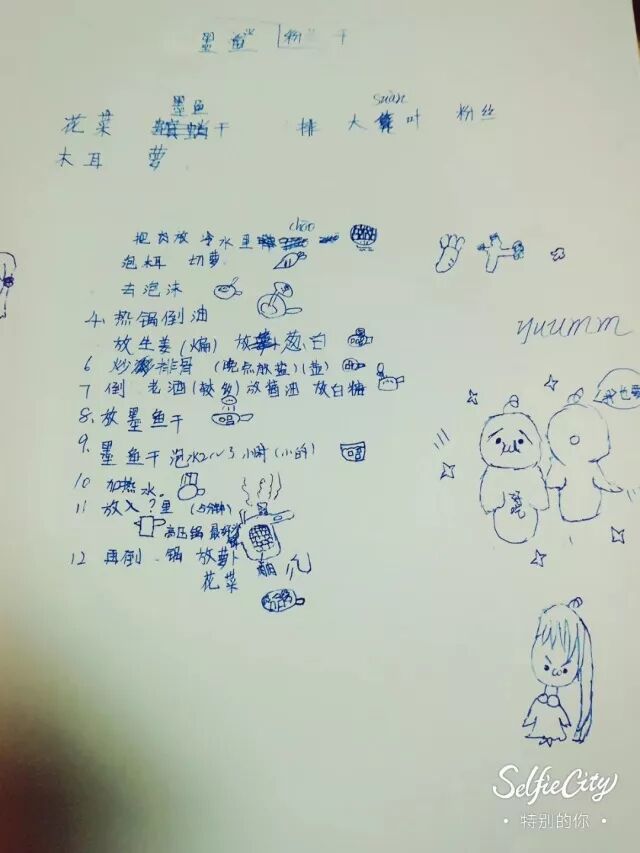 墨鱼 粉 干
墨鱼 suàn
花菜 干 排 大蒜叶 粉丝
木耳 萝
chāo
把肉放 冷水里
泡木耳 切萝
去泡沫
4、热锅倒油
放生姜(煸) 放 葱白
6 炒 排骨 (晚点放盐)(盐)
7 倒 老酒(较多)放酱油 放白糖
8. 放墨鱼干
9. 墨鱼干 泡水2~3小时(小的)
10 加热水.
11 放入?里 (5分钟)
高压锅 最好
12 再倒 锅 放萝卜
花菜
yuumm
我也要
SelfieCity
· 特别的你 ·